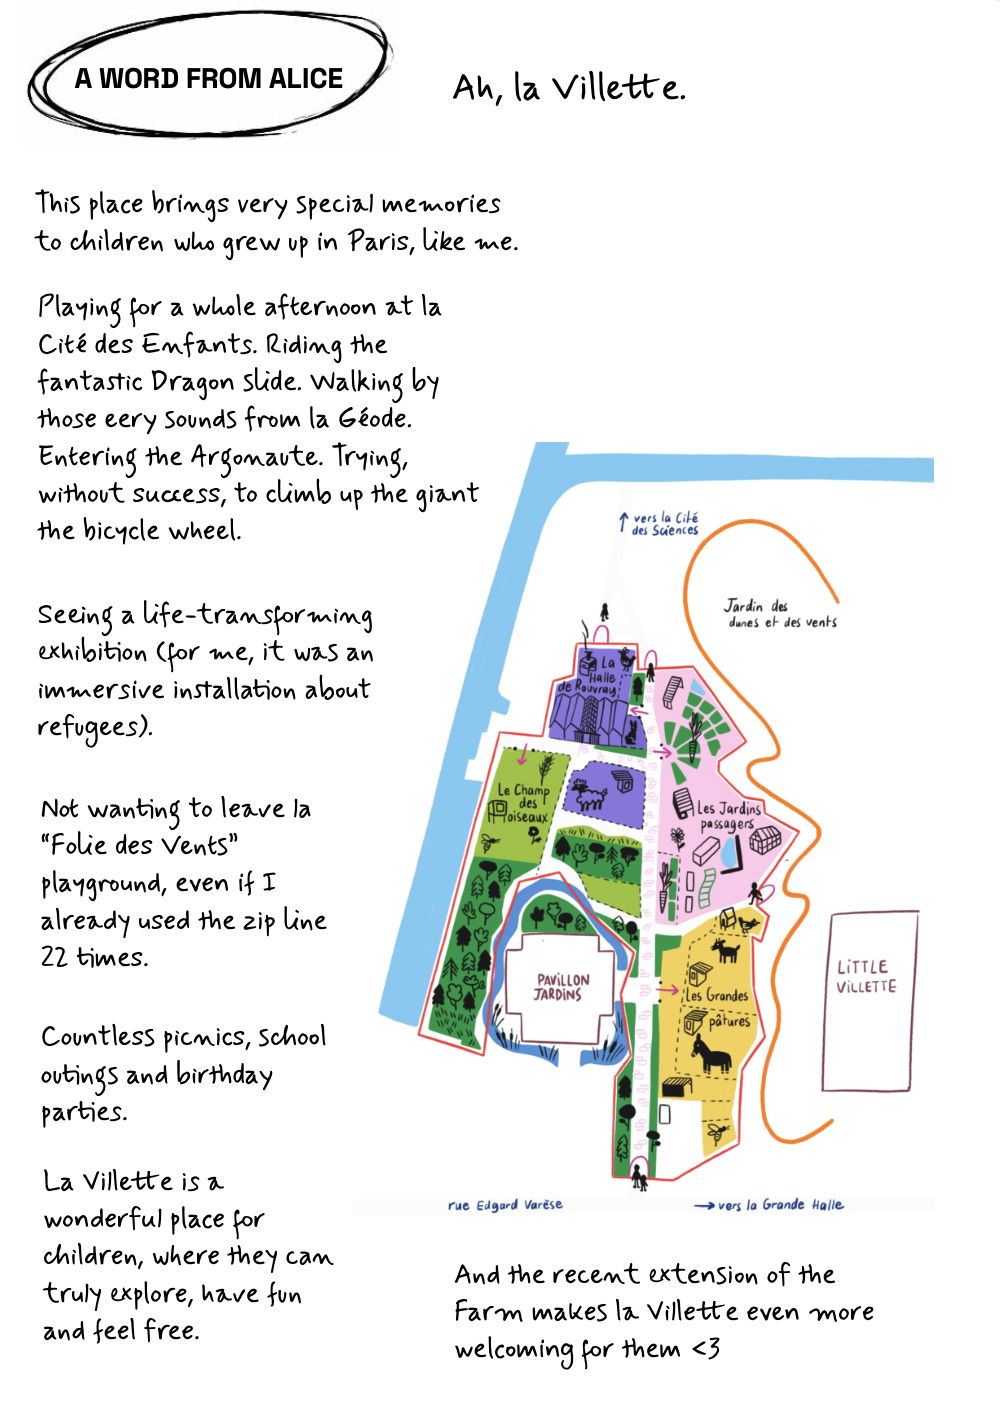 A WORD FROM ALICE
Ah, la Villette.
This place brings very special memories
to children who grew up in Paris, like me.
Playing for a whole afternoon at la
Cité des Enfants. Riding the
fantastic Dragon slide. Walking by
those eery sounds from la Géode.
Entering the Argonaute. Trying,
without success, to climb up the giant
the bicycle wheel.
Seeing a life-transforming
exhibition (for me, it was an
immersive installation about
refugees).
Not wanting to leave la
"Folie des Vents"
playground, even if I
already used the zip line
22 times.
Countless picnics, school
outings and birthday
parties.
La Villette is a
wonderful place for
children, where they can
truly explore, have fun
and feel free.
↑ vers la Cité
des Sciences
Jardin des
dunes et des vents
La
Halle
de Rouvray
Le Champ
des
oiseaux
Les Jardins
passagers
PAVILLON
JARDINS
Les Grandes
pâtures
LITTLE
VILLETTE
rue Edgard Varèse
→ vers la Grande Halle
And the recent extension of the
Farm makes la Villette even more
welcoming for them <3